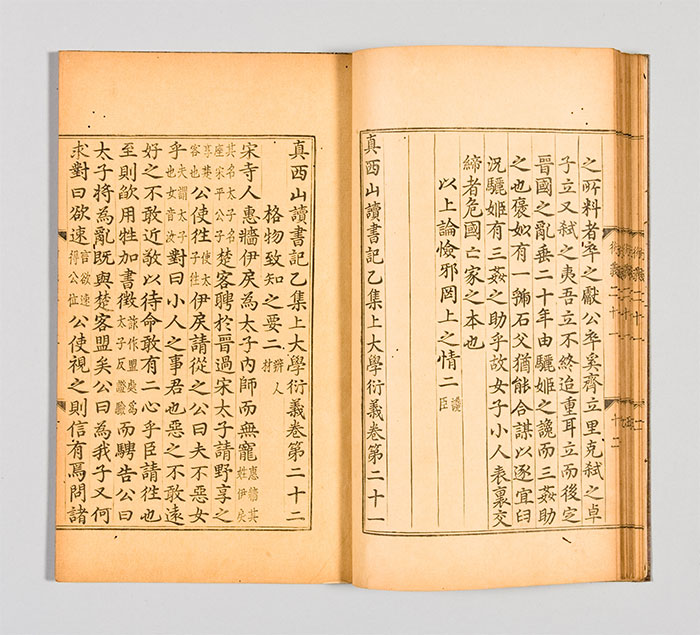 之所料者卒之獻公卒奚齊立里克弒之卓
子立又弒之夷吾立不終迨重耳立而後定
晉國之亂垂二十年由驪姬之讒而三姦助
之也褒姒有一虢石父猶能合謀以逐宜臼
況驪姬有三姦之助乎故女子小人表裏交
締者危國亡家之本也
以上論憸邪罔上之情二讒臣
真西山讀書記乙集上大學衍義卷第二十一
真西山讀書記乙集上大學衍義卷第二十二
格物致知之要二辨人材
宋寺人惠牆伊戾為太子內師而無寵惠牆其姓伊戾
其名太子名座宋平公子楚客聘於晉過宋太子請野享之
享楚客也公使往使太子往伊戾請從之公曰夫不惡女
乎夫謂太子也女音汝對曰小人之事君也惡之不敢遠
好之不敢近敬以待命敢有二心乎臣請往也
至則欿用牲加書徵詐作盟處為太子反證驗而騁告公曰
太子將為亂既與楚客盟矣公曰為我子又何
求對曰欲速言欲速得公位公使視之則信有焉問諸